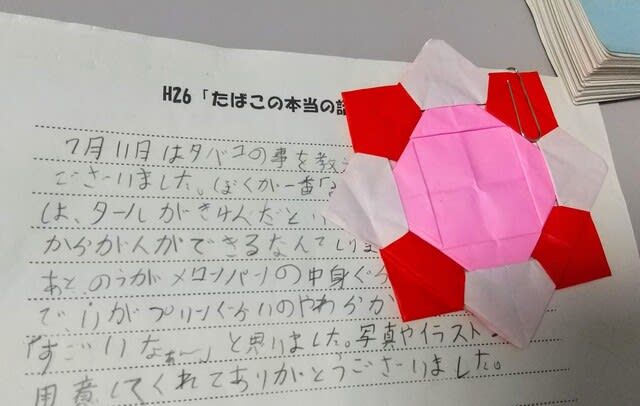 H26「たばこの本当の話
7月11日はタバコの事を教え
ございました。ぼくが一番「
は、タールがきけんだとい
からがんができるなんてしりま
あと のうがメロンパンの中身ぐら
で いがプリンぐらいのやわらか
「すごいなぁ〜」と思いました。写真やイラスト
用意してくれてありがとうございました。